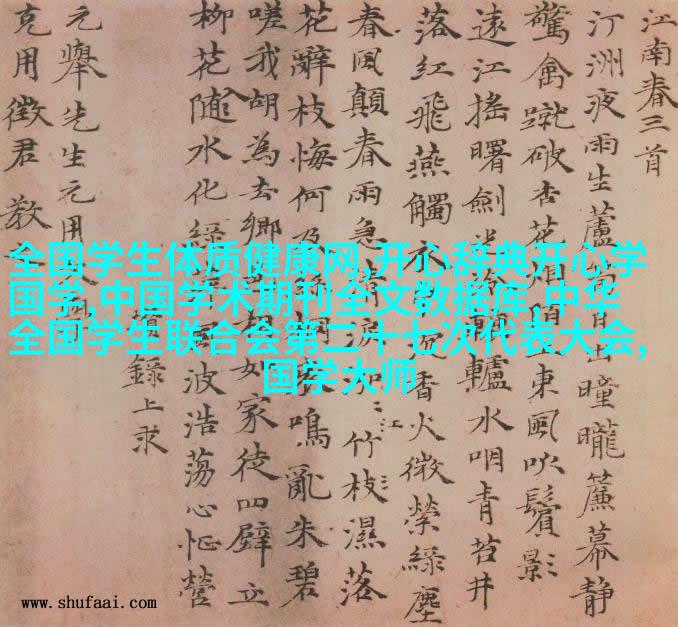 江南春三首
汀洲夜雨生蘆筍日出曈曨簾幕靜
驚禽蹴破杏花烟陌上東風吹鬢影
遠江搖曙劍轆轤水咽青苔井
落红飛燕觸衣香火微縈緑塵
春風顛春雨急清淚江竹枝濕落
花辭枝悔何及鳴亂朱碧
嗟我胡為去鄉如家徒四壁立
柳花隨水化緑風波浩蕩心怔營
錄上求
元舉先生元用
克用徵君教
全国学生体质健康网,开心辞典开心学
国学,中国学术期刊全文数据库,中华
全国学生联合会第二十七次代表大会,
国学大师
www.shufaai.com